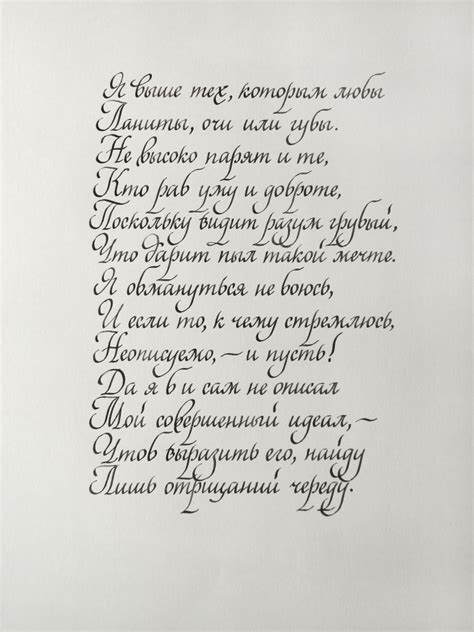 Я выше тех, которым любы
Ланиты, очи или губы.
Не высоко парят и те,
Кто раб уму и доброте,
Поскольку видит разум грубый,
Что дарит пыл такой мечте.
Я обмануться не боюсь,
И если то, к чему стремлюсь,
Неописуемо, – и пусть!
Да я б и сам не описал
Мой совершенный идеал, –
Чтоб выразить его, найду
Лишь отрицаний череду.